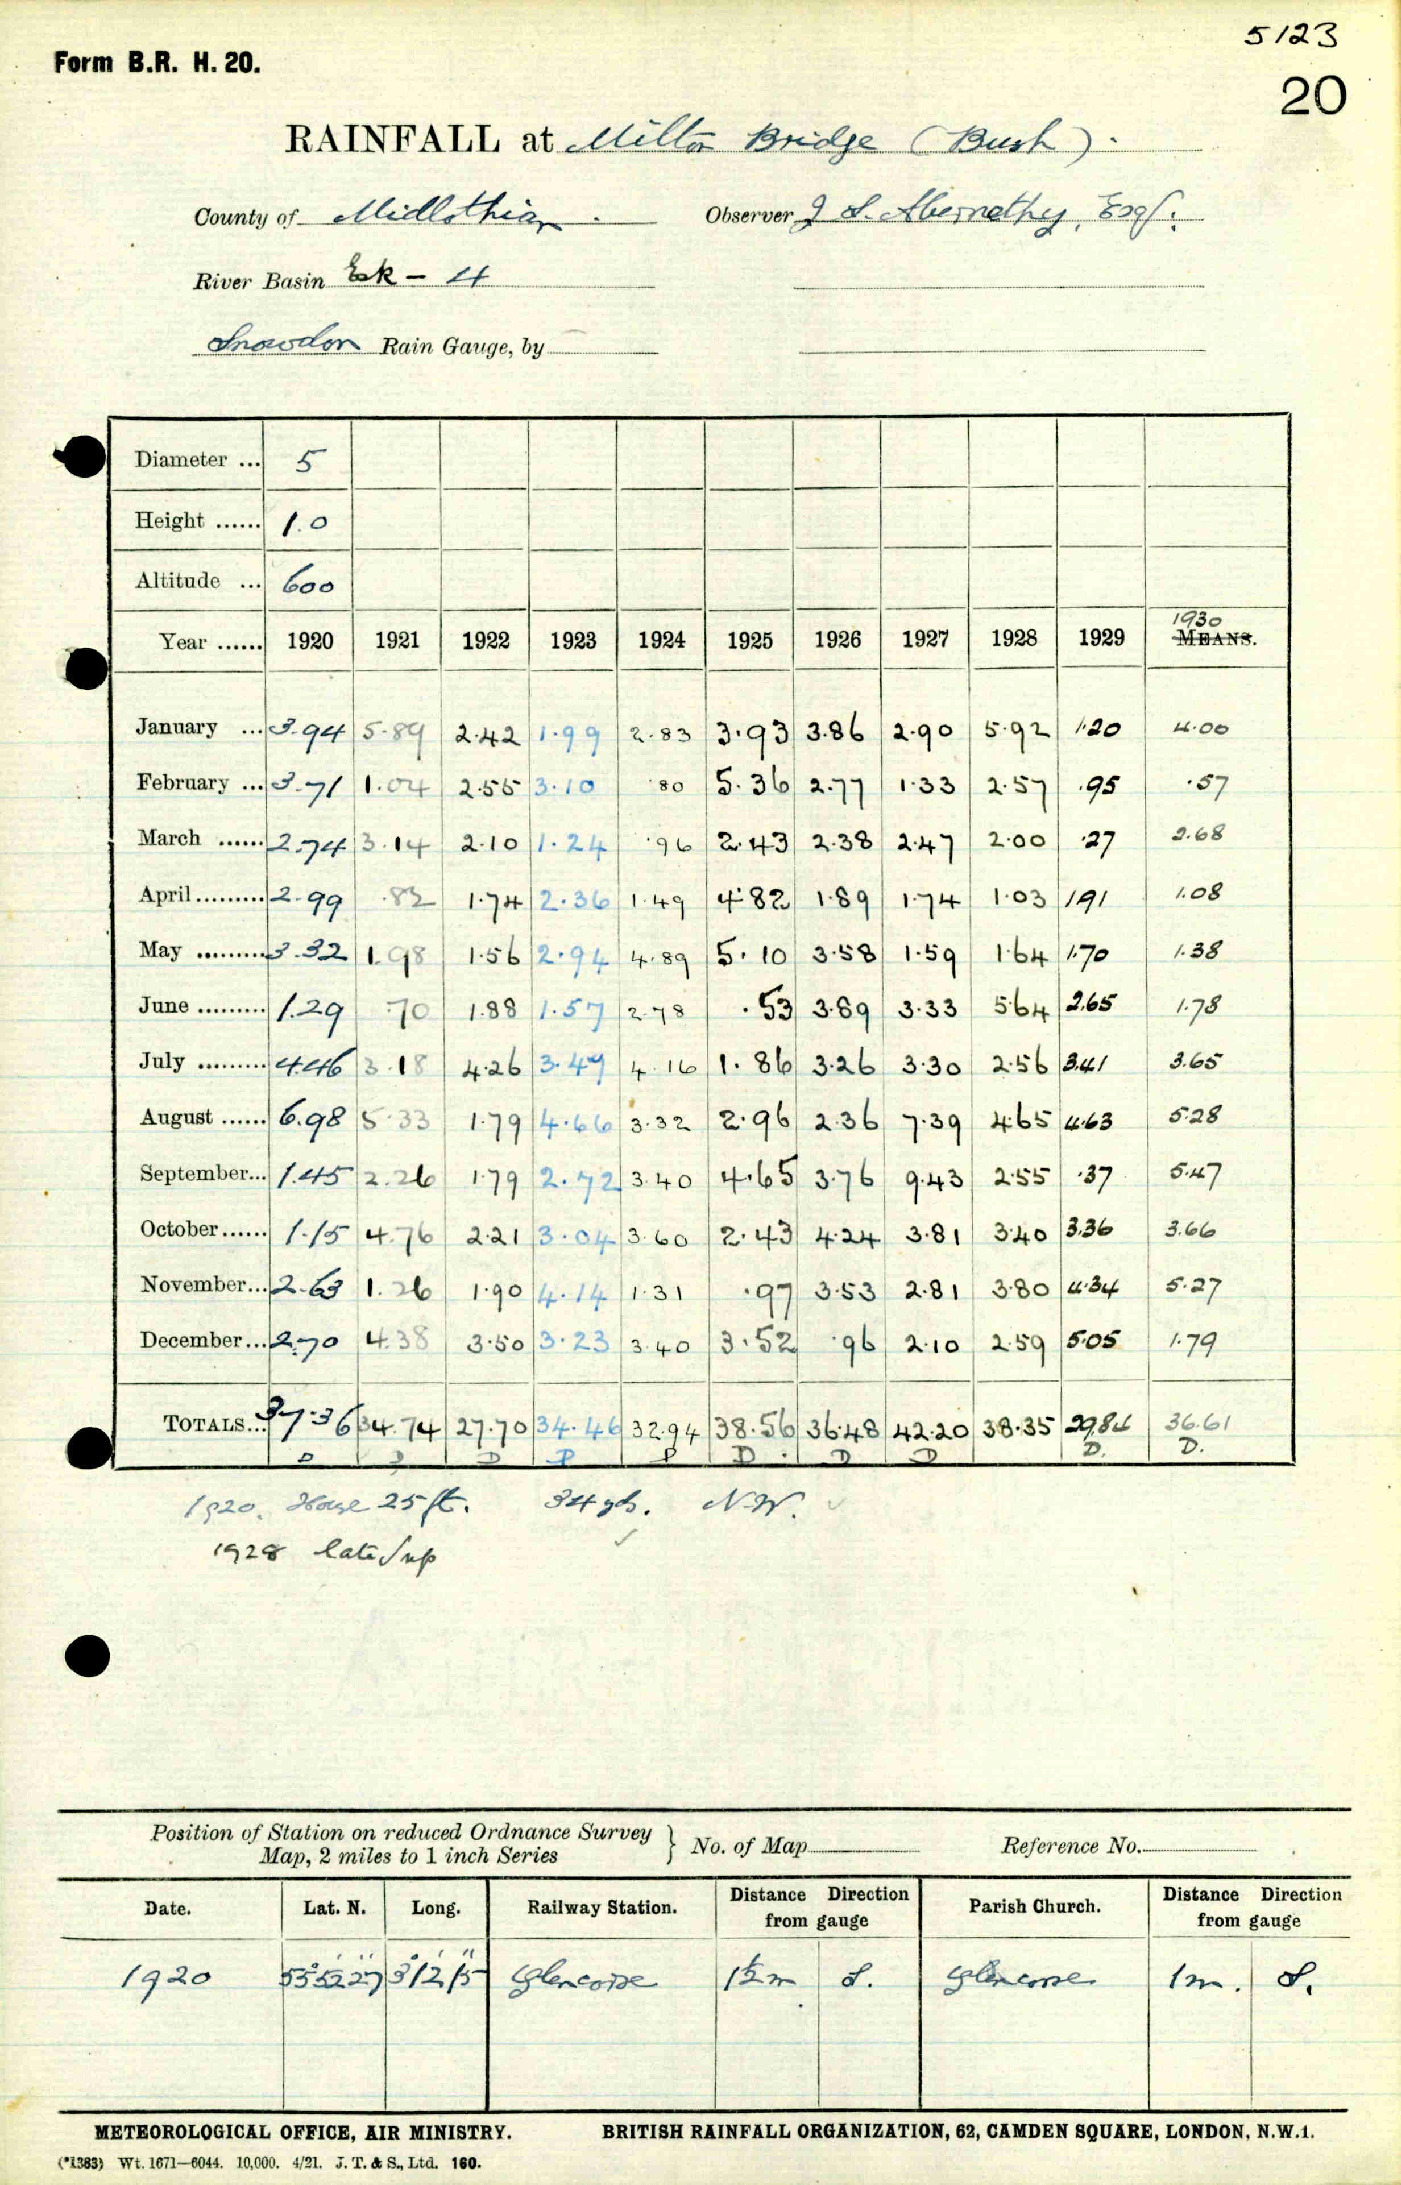 5123
Form B.R. H. 20.
20
RAINFALL at Milton Bridge (Bush).
County of Midlothian. Observer J. S. Abernethy, Esq.
River Basin Esk - 4
Snowdon Rain Gauge, by
Diameter ... 5
Height ...... 1.0
Altitude ... 600
1930
Year ...... 1920 1921 1922 1923 1924 1925 1926 1927 1928 1929 MEANS.
January ... 3.94 5.89 2.42 1.99 2.83 3.93 3.86 2.90 5.92 1.20 4.00
February ... 3.71 1.04 2.55 3.10 .80 5.36 2.77 1.33 2.57 .95 .57
March ...... 2.74 3.14 2.10 1.24 .96 2.43 2.38 2.47 2.00 .27 2.68
April ......... 2.99 .82 1.74 2.36 1.49 4.82 1.89 1.74 1.03 1.91 1.08
May ......... 3.32 1.98 1.56 2.94 4.89 5.10 3.58 1.59 1.64 1.70 1.38
June ......... 1.29 .70 1.88 1.57 2.78 .53 3.89 3.33 5.64 2.65 1.78
July ......... 4.46 3.18 4.26 3.47 4.16 1.86 3.26 3.30 2.56 3.41 3.65
August ...... 6.98 5.33 1.79 4.66 3.32 2.96 2.36 7.39 4.65 4.63 5.28
September... 1.45 2.26 1.79 2.72 3.40 4.65 3.76 9.43 2.55 .37 5.47
October ...... 1.15 4.76 2.21 3.04 3.60 2.43 4.24 3.81 3.40 3.36 3.66
November... 2.63 1.26 1.90 4.14 1.31 .97 3.53 2.81 3.80 4.34 5.27
December ... 2.70 4.38 3.50 3.23 3.40 3.52 .96 2.10 2.59 5.05 1.79
TOTALS... 37.36 34.74 27.70 34.46 32.94 38.56 36.48 42.20 38.35 29.84 36.61
D D D D D D D D D. D.
1920. House 25 ft. 34 yds. N.W.
1928 late/sup
Position of Station on reduced Ordnance Survey
Map, 2 miles to 1 inch Series } No. of Map Reference No.
Date. Lat. N. Long. Railway Station. Distance Direction from gauge Parish Church. Distance Direction from gauge
1920 55° 52' 27" 3° 12' 15" Glencorse 1½ m S. Glencorse 1 m. S.
METEOROLOGICAL OFFICE, AIR MINISTRY. BRITISH RAINFALL ORGANIZATION, 62, CAMDEN SQUARE, LONDON, N.W.1.
(*1383) Wt. 1671—6044. 10,000. 4/21. J. T. & S., Ltd. 160.